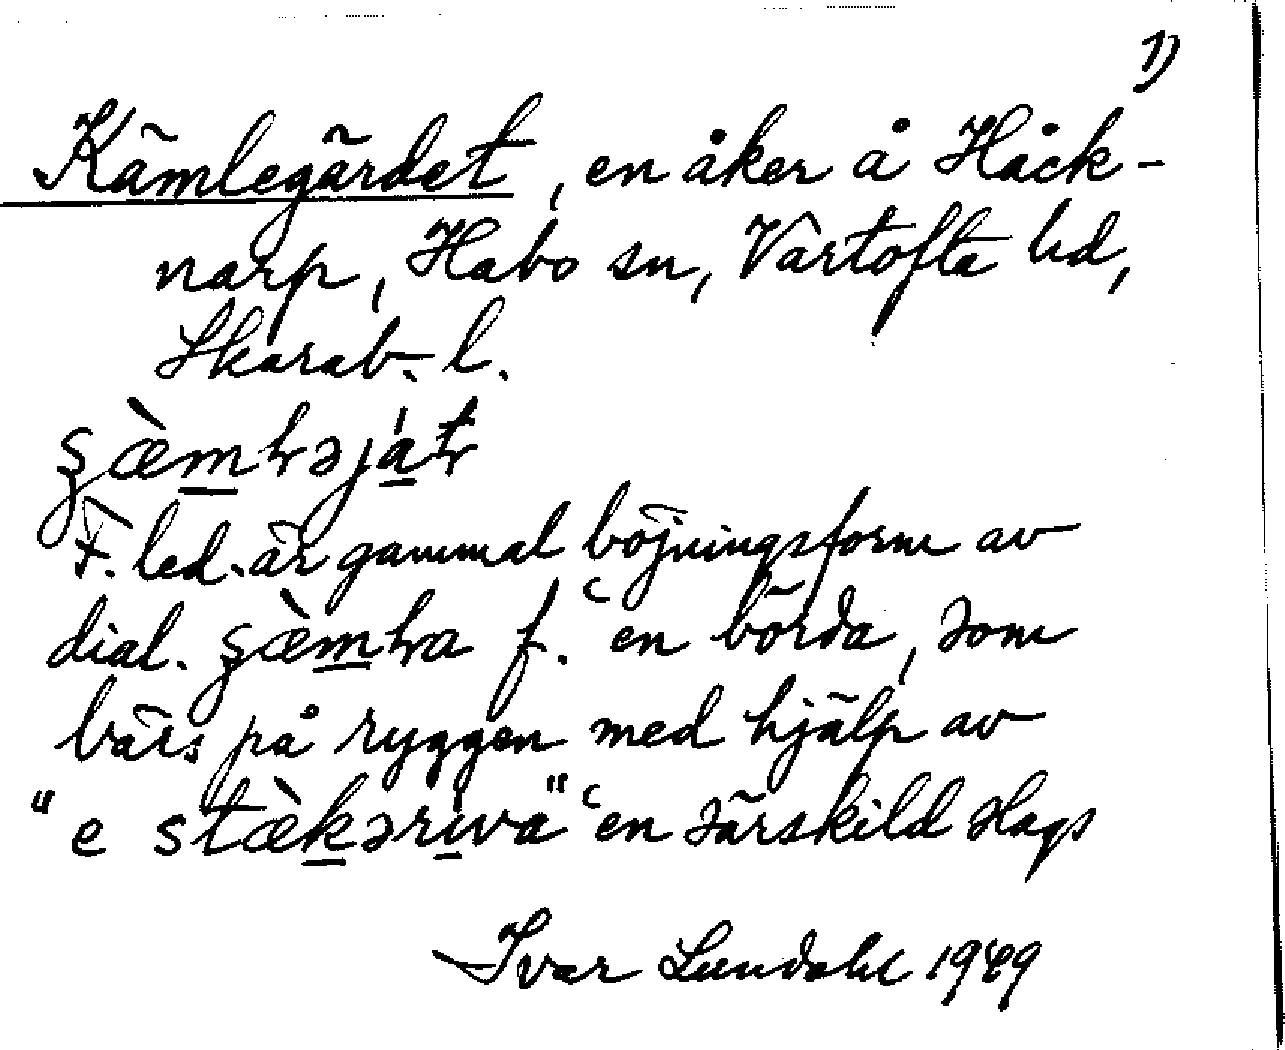 1)
Kämlegärdet, en åker å Håck-
narp, Habo sn, Vartofta hd,
Skarab. l.
F. led. är gammal böjningsform av
dial. f. "en börda, som
bärs på ryggen med hjälp av
"e stæ̀kəriva" "en särskild slags
Ivar Lundahl 1949